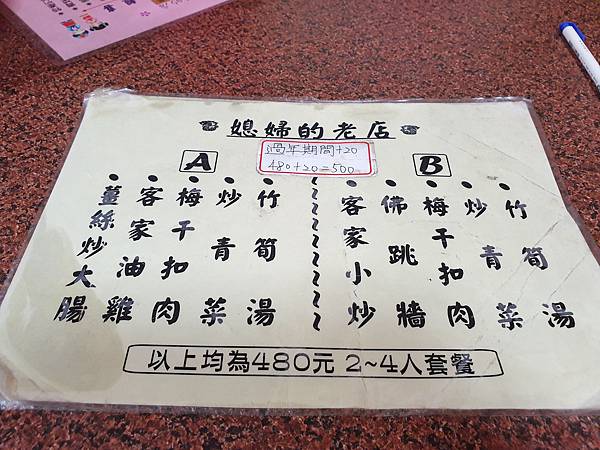 媳婦的老店
過年期間+20
480+20=500
A
薑絲炒大腸
客家油雞
梅干扣肉
炒青菜
竹筍湯
B
客家小炒
佛跳牆
梅干扣肉
炒青菜
竹筍湯
以上均為480元 2~4人套餐